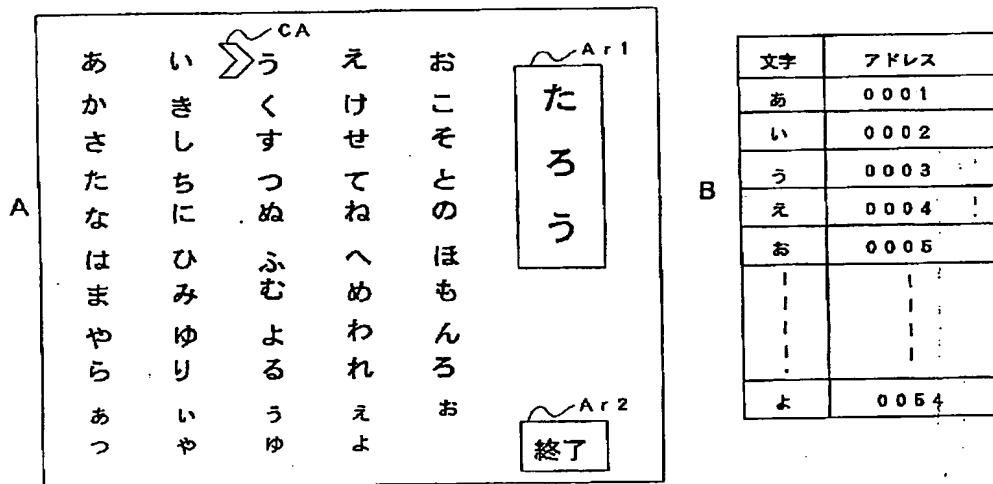 CA
あ い う え お
か き く け こ
さ し す せ そ
た ち つ て と
な に ぬ ね の
は ひ ふ へ ほ
ま み む め も
や ゆ よ わ ん
ら り る れ ろ
ぁ ぃ ぅ ぇ ぉ
っ ゃ ゅ ょ
Ar1
たろう
Ar2
終了
A
B
文字 アドレス
あ 0001
い 0002
う 0003
え 0004
お 0005
ょ 0054